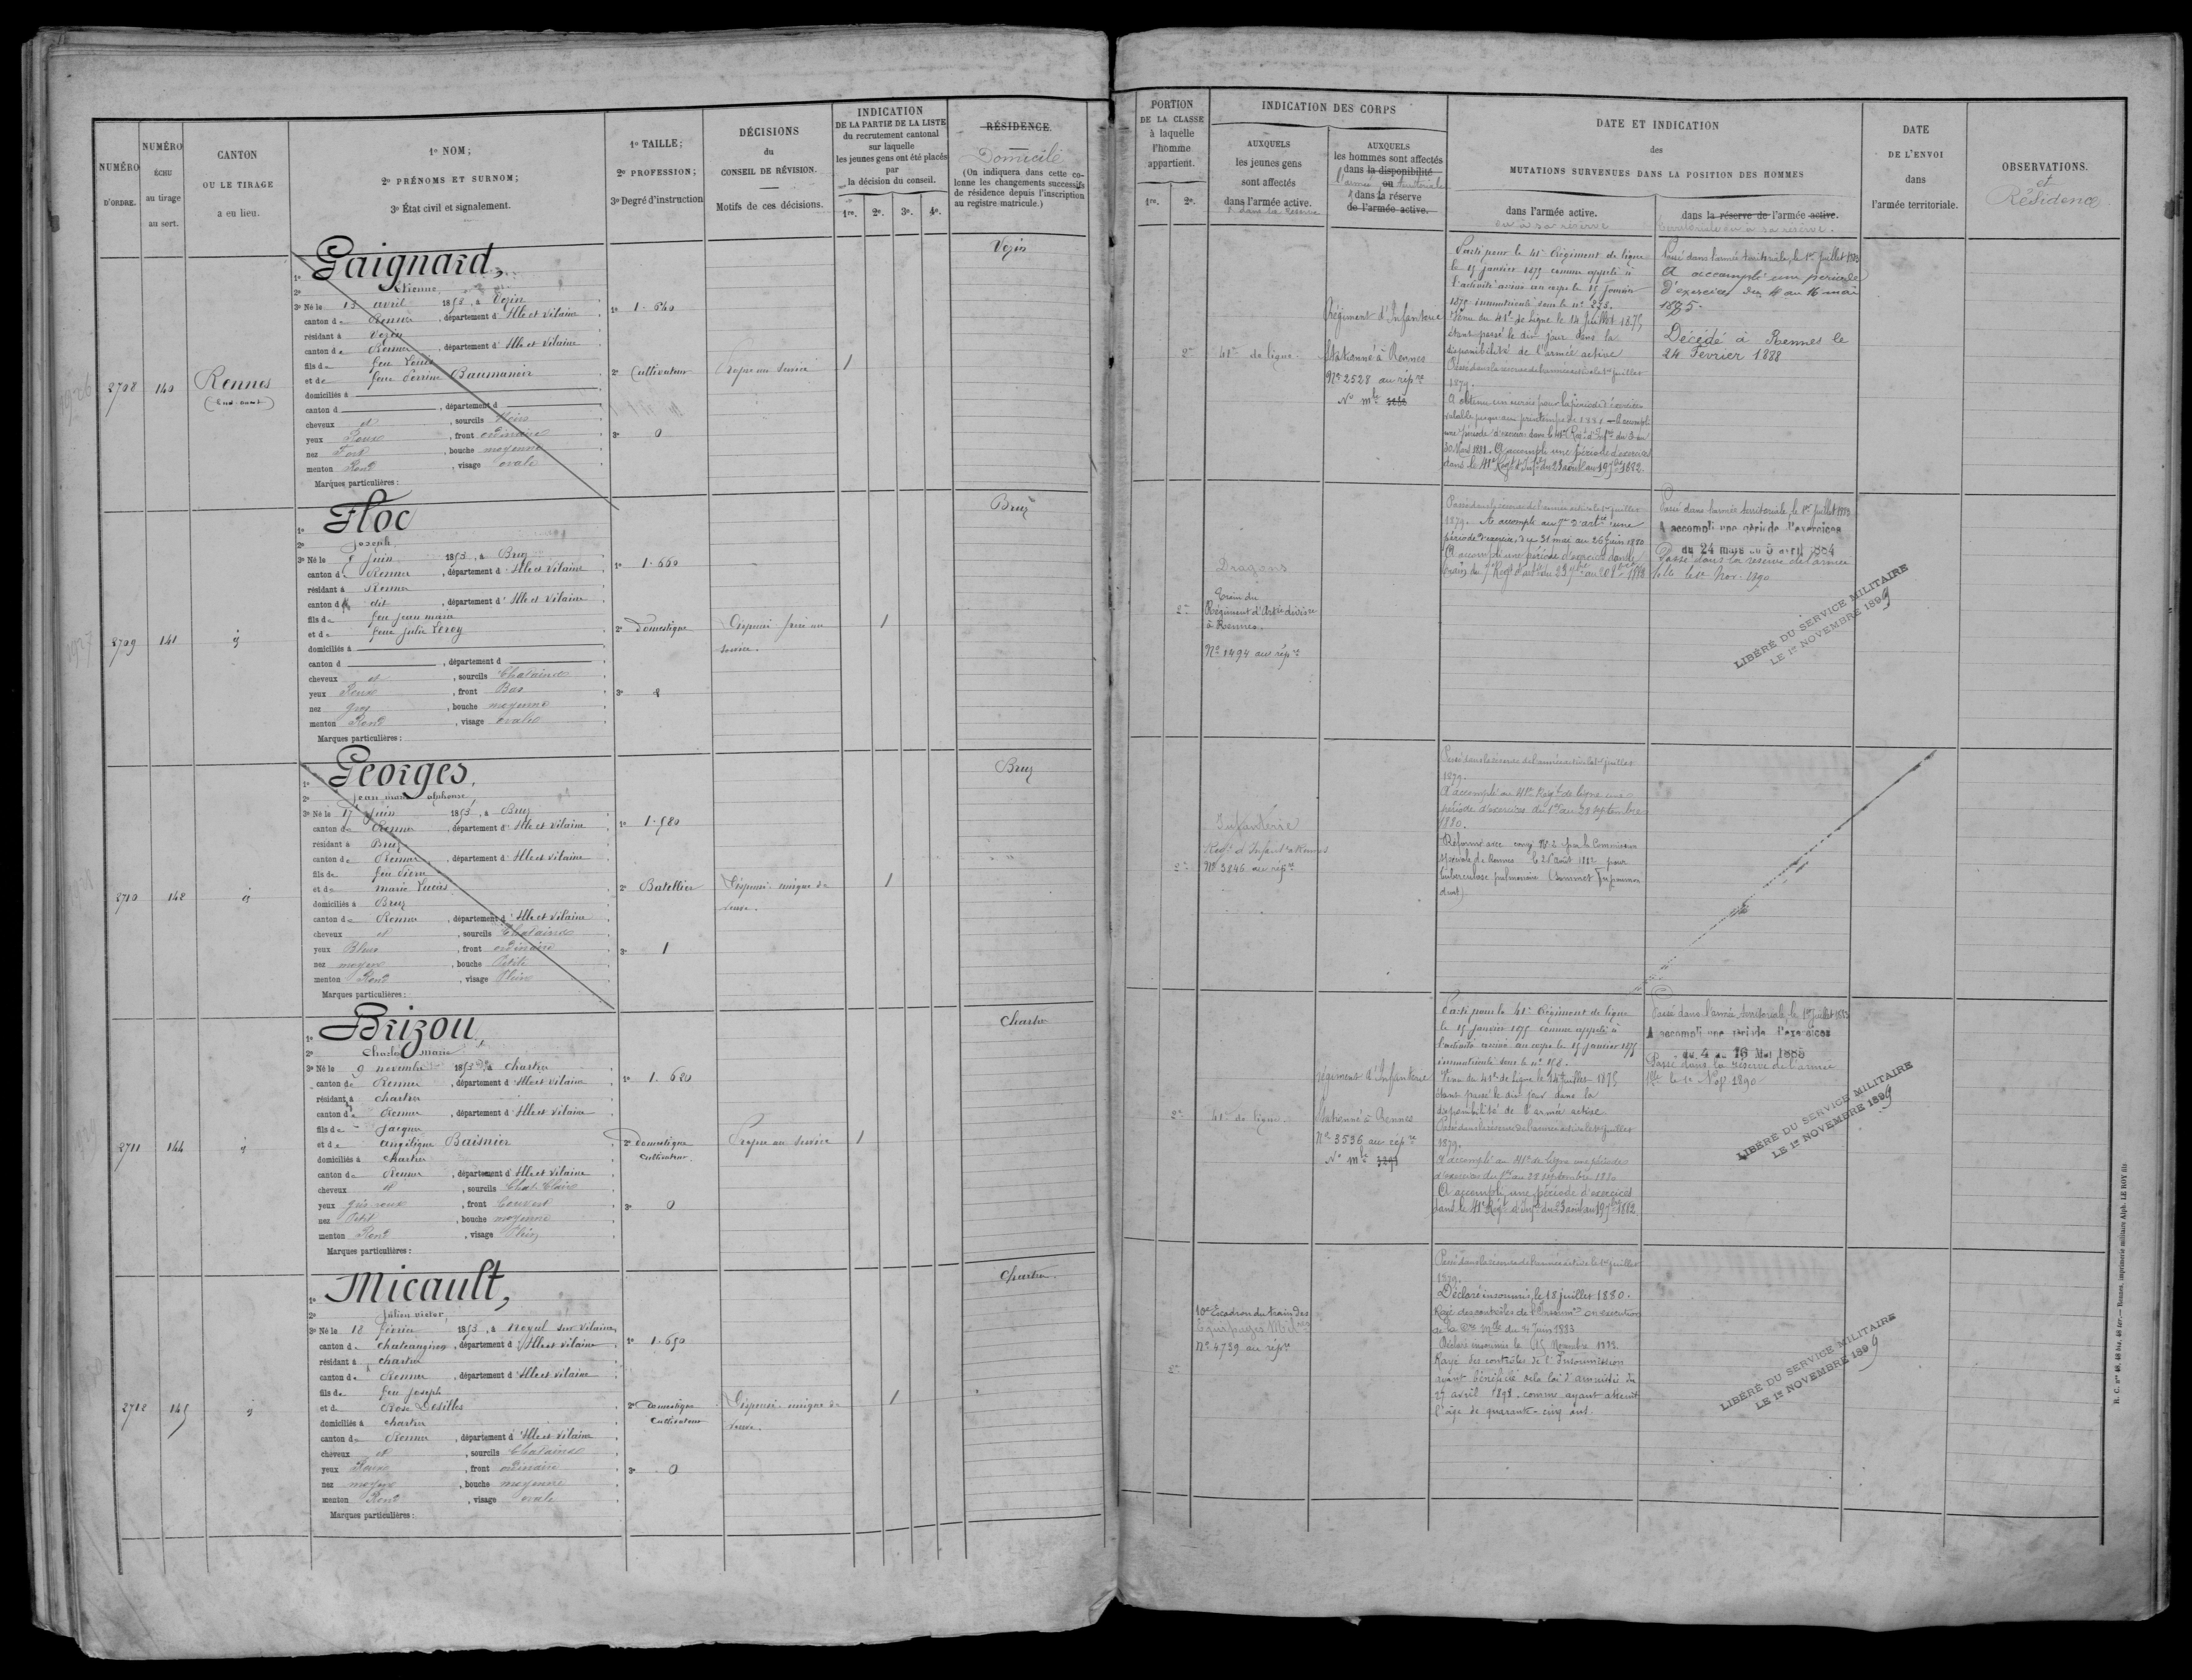 NUMÉRO D'ORDRE.
NUMÉRO ÉCHU au tirage au sort.
CANTON OU LE TIRAGE a eu lieu.
1º NOM;
2º PRÉNOMS ET SURNOM;
3º État civil et signalement.
1º TAILLE;
2º PROFESSION;
3º Degré d'instruction
DÉCISIONS du CONSEIL DE RÉVISION.
Motifs de ces décisions.
INDICATION
DE LA PARTIE DE LA LISTE
du recrutement cantonal
sur laquelle
les jeunes gens ont été placés
par
la décision du conseil.
1re. 2e. 3e. 4e.
RÉSIDENCE.
Domicile
(On indiquera dans cette colonne les changements successifs de résidence depuis l'inscription au registre matricule.)
2708
140
Rennes
1º Gaignard,
2º Etienne
3º Né le 13 avril 1853, à Vezin
canton de Rennes, département d'Ille et Vilaine
résidant à Vezin
canton de Rennes, département d'Ille et Vilaine
fils de feu Louis
et de feue Perrine Baumanoir
domiciliés à
canton d , département d
cheveux et , sourcils Noirs
yeux Roux , front ordinaire
nez Fort , bouche moyenne
menton Rond , visage ovale
Marques particulières :
1º 1.640
2º Cultivateur
3º 0
Propre au service
1
Vezin
2709
141
id
1º Floc
2º Joseph
3º Né le 8 Juin 1853, à Bruz
canton de Rennes, département d'Ille et Vilaine
résidant à Rennes
canton d dit , département d'Ille et Vilaine
fils de feu Jean marie
et de feue Julie Leroy
domiciliés à
canton d , département d
cheveux et , sourcils Chatains
yeux Roux , front Bas
nez gros , bouche moyenne
menton Rond , visage ovale
Marques particulières :
1º 1.660
2º Domestique
3º
Dispensé frère au service.
1
Bruz
2710
142
id
1º Georges,
2º Jean marie alphonse
3º Né le 17 Juin 1853, à Bruz
canton de Rennes, département d'Ille et Vilaine
résidant à Bruz
canton de Rennes, département d'Ille et Vilaine
fils de feu Pierre
et de marie Lucas
domiciliés à Bruz
canton de Rennes, département d'Ille et Vilaine
cheveux et , sourcils Chatains
yeux Bleus , front ordinaire
nez moyen , bouche Petite
menton Rond , visage Plein
Marques particulières :
1º 1.580
2º Batellier
3º 1
Dispensé unique de veuve.
1
Bruz
2711
144
id
1º Brizou,
2º Charles marie
3º Né le 9 novembre 1853, à Chartres
canton de Rennes, département d'Ille et Vilaine
résidant à Chartres
canton de Rennes, département d'Ille et Vilaine
fils de Jacques
et de angélique Baisnier
domiciliés à Chartres
canton de Rennes, département d'Ille et Vilaine
cheveux et , sourcils Chat. Clairs
yeux gris roux , front Couvert
nez Petit , bouche moyenne
menton Rond , visage Plein
Marques particulières :
1º 1.620
2º domestique Cultivateur.
3º 0
Propre au service
1
Chartres
2712
145
id
1º Micault,
2º Julien victor
3º Né le 18 février 1853, à Noyal sur Vilaine
canton de Chateaugiron, département d'Ille et Vilaine
résidant à Chartres
canton de Rennes, département d'Ille et Vilaine
fils de feu Joseph
et de Rose Desilles
domiciliés à Chartres
canton de Rennes, département d'Ille et Vilaine
cheveux et , sourcils Chatains
yeux Roux , front ordinaire
nez moyen , bouche moyenne
menton Rond , visage ovale
Marques particulières :
1º 1.650
2º domestique Cultivateur
3º 0
Dispensé unique de veuve.
1
Chartres.
PORTION DE LA CLASSE à laquelle l'homme appartient.
1re. 2e.
INDICATION DES CORPS
AUXQUELS les jeunes gens sont affectés dans l'armée active.
& dans la Réserve
AUXQUELS les hommes sont affectés dans la disponibilité ou
l'armée territoriale
& dans la réserve de l'armée active.
DATE ET INDICATION
des
MUTATIONS SURVENUES DANS LA POSITION DES HOMMES
dans l'armée active.
ou à sa réserve
dans la réserve de l'armée active.
territoriale ou à sa réserve.
DATE DE L'ENVOI dans l'armée territoriale.
OBSERVATIONS.
et
Résidence
2e
41e de ligne
Régiment d'Infanterie
Stationné à Rennes
Nº 2528 au répre
Nº mle
Parti pour le 41e Régiment de ligne
le 15 janvier 1875 comme appelé à
l'activité arrivé au corps le 15 janvier
1875 immatriculé sous le nº 235.
Venu du 41e de ligne le 14 Juillet 1875
étant passé le dit jour dans la
disponibilité de l'armée active
Passé dans la réserve de l'armée active le 1er juillet
1879.
A obtenu un sursis pour la période d'exercices
valable jusqu'au printemps de 1881. A accompli
une période d'exercices dans le 41e Régt d'Infie du 3 au
30 Mars 1881. A accompli une période d'exercices
dans le 41e Régt d'Infie du 23 août au 19 7bre 1882
Passé dans l'armée territoriale, le 1er Juillet 1883
A accompli une période
d'exercices du 4 au 16 mai
1885.
Décédé à Rennes le
24 Février 1888
2e
Dragons
Train du
Régiment d'Artie divisre
à Rennes.
Nº 1494 au répre
Passé dans la réserve de l'armée active le 1er juillet
1879. A accompli au 7e d'artie une
période d'exercices du 31 mai au 26 Juin 1880
A accompli une période d'exercices dans le
train du 7e Régt d'artie du 23 7bre au 20 8bre 1882
Passé dans l'armée territoriale, le 1er Juillet 1883
A accompli une période d'exercices
du 24 mars au 5 avril 1884
Passé dans la réserve de l'armée
tle le 1er Nov. 1890
LIBÉRÉ DU SERVICE MILITAIRE
LE 1er NOVEMBRE 1899
2e
Infanterie
Régt d'Infant à Rennes
Nº 3846 au répre
Passé dans la réserve de l'armée active le 1er juillet
1879.
A accompli au 41e Régt de ligne une
période d'exercices du 1er au 28 septembre
1880.
Réformé avec congé Nº 2 par la Commission
spéciale de Rennes le 26 août 1882 pour
tuberculose pulmonaire (sommet du poumon
droit)
2e
41e de ligne
Régiment d'Infanterie
Stationné à Rennes
Nº 3536 au répre
Nº mle
Parti pour le 41e Régiment de ligne
le 15 janvier 1875 comme appelé à
l'activité arrivé au corps le 15 janvier 1875
immatriculé sous le nº 158.
Venu du 41e de ligne le 14 Juillet 1875
étant passé le dit jour dans la
disponibilité de l'armée active
Passé dans la réserve de l'armée active le 1er juillet
1879.
A accompli au 41e de ligne une période
d'exercices du 1er au 28 septembre 1880
A accompli une période d'exercices
dans le 41e Régt d'Infie du 23 août au 19 7bre 1882
Passé dans l'armée territoriale, le 1er Juillet 1883
A accompli une période d'exercices
du 4 au 16 Mai 1885
Passé dans la réserve de l'armée
tle le 1er Nov 1890
LIBÉRÉ DU SERVICE MILITAIRE
LE 1er NOVEMBRE 1899
2e
10e Escadron du train des
Équipages Milres
Nº 4739 au répre
Passé dans la réserve de l'armée active le 1er juillet
1879.
Déclaré insoumis, le 18 juillet 1880.
Rayé des contrôles de l'Insoumon en exécution
de la Dée Mlle du 4 Juin 1883
Déclaré insoumis le 15 Novembre 1883.
Rayé des contrôles de l'Insoumission
ayant bénéficié de la loi d'amnistie du
27 avril 1898, comme ayant atteint
l'âge de quarante-cinq ans.
LIBÉRÉ DU SERVICE MILITAIRE
LE 1er NOVEMBRE 1899
R. C. nos 48, 48 bis, 48 ter. — Rennes, imprimerie militaire Alph. LE ROY fils